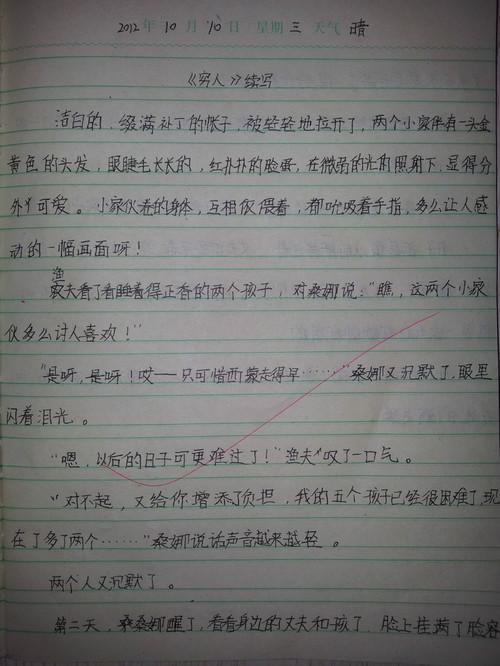 2012年 10月 10日 星期 三 天气 晴
《穷人》续写
洁白的、缀满补丁的帐子，被轻轻地拉开了，两个小家伙有一头金
黄色的头发，眼睫毛长长的，红扑扑的脸蛋，在微弱的光的照射下，显得分
外丫可爱。小家伙卷的身体，互相依偎着，都吮吸着手指，多么让人感
动的一幅画面呀！
渔夫看了看睡着得正香的两个孩子，对桑娜说：“瞧，这两个小家
伙多么讨人喜欢！”
“是呀，是呀！哎——只可惜西蒙走得早……”桑娜又沉默了，眼里
闪着泪光。
“嗯，以后的日子可更难过了！”渔夫叹了一口气。
“对不起，又给你增添了负担，我的五个孩子已经很困难了，现
在了多了两个……”桑娜说话声音越来越轻。
两个人又沉默了。
第二天，桑桑娜醒了，看看身边的丈夫和孩子，脸上挂满了脸容